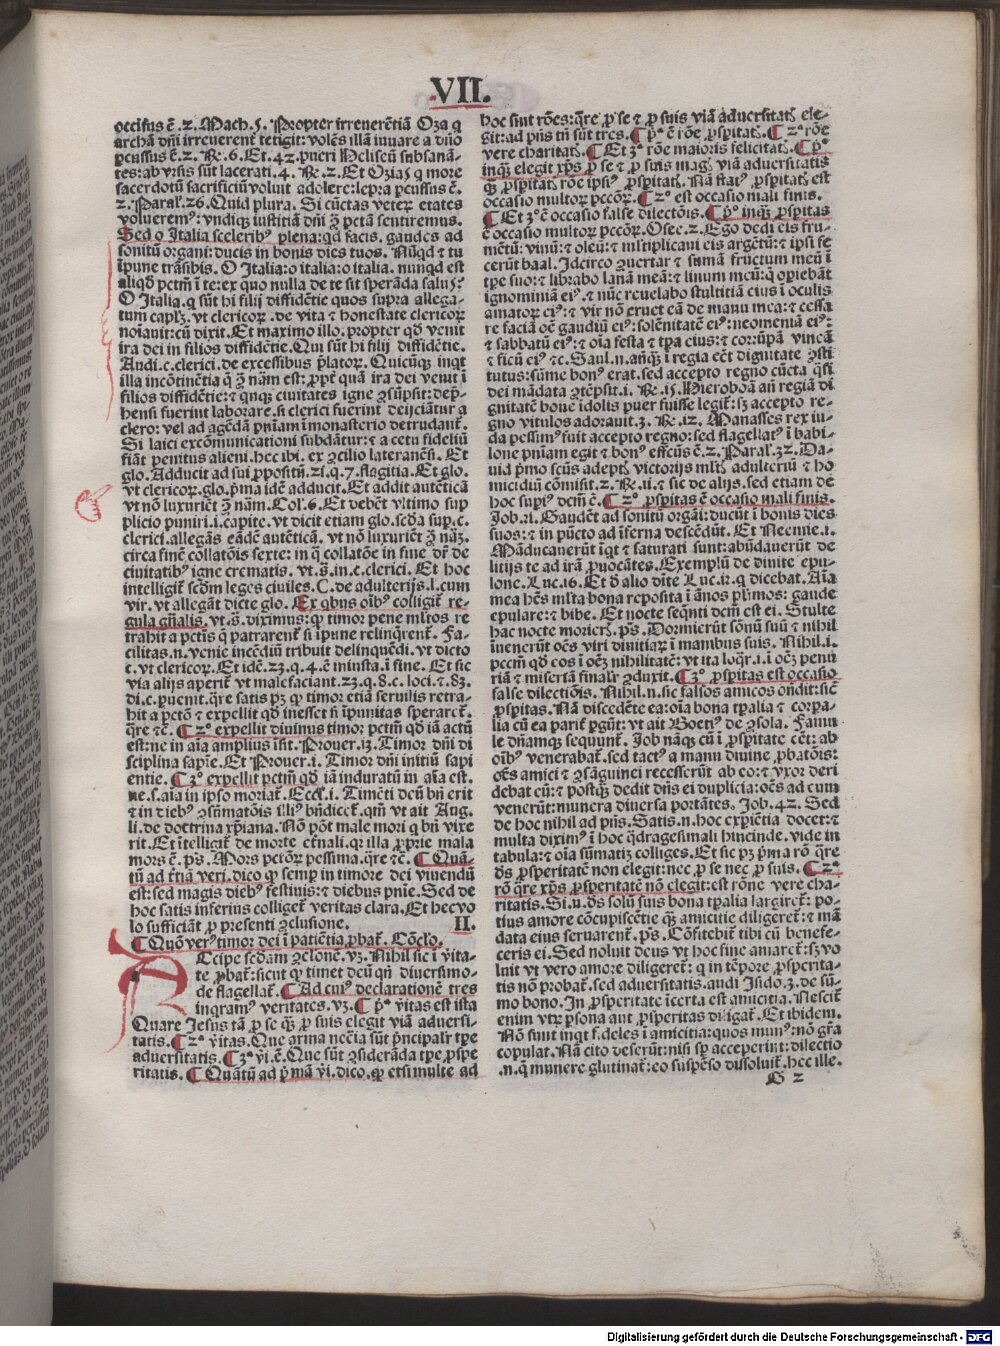 VII.
occisus ē .2. Mach.5. Propter irreuerētiā Oza q
archā dñi irreuerent̄ tetigit: volēs illā iuuare a dño
percussus ē .2. Re .6. Et .42. pueri Heliseū subsanā-
tes: ab vrsis sūt lacerati .4. Re .2. Et Ozias q more
sacerdotū sacrificiū voluit adolere: lepra percussus ē.
2. Paral .26. Quid plura. Si cūctas veter etates
voluerem⁹: vndiq₃ iustitiā dñi ꝫ pctā sentiremus.
Sed o Italia sceleribꝰ plena: qd facis. gaudes ad
sonitū organi: ducis in bonis dies tuos. Nūqd et tu
īpune trāsibis. O Italia: o italia: o italia. nunqd est
aliqd pctm̄ ī te: ex quo nulla de te sit sperāda salus?
O Italia. q sūt hi filij diffidētie quos supra allega-
tum vt clericor. de vita et honestate clericor
notauit: cū dixit. Et maximo illo. propter qd venit
ira dei in filios diffidētie. Qui sūt hi filij diffidētie.
Audi .c. clerici. de excessibus p̄lator. Quicūq₃ inqt
illa incōtinētia q ꝫ nām est: propt̄ quā ira dei venit ī
filios diffidētie: et quinq₃ ciuitates igne
hensi fuerint laborare. si clerici fuerint deijciātur a
clero: vel ad agēdā pniam ī monasterio detrudant̄.
Si laici excōmunicationi subdātur: et a cetu fideliū
fiāt penitus alieni. hec ibi. ex ꝫcilio lateranēsi. Et
glo. Adducit ad sui ppositū .21. q. 7. flagitia. Et glo.
vt clericor. glo. prima idē adducit. Et addit autēticā
vt nō luxuriēt ꝫ nām. Col. 6. Et debēt vltimo sup
plicio puniri .i. capite. vt dicit etiam glo. scda sup .c.
clerici. allegās eādē autēticā. vt nō luxuriēt ꝫ nām.
circa finē collatōis sexte: in q collatōe in fine dr̄ de
ciuitatibꝰ igne crematis. vt .s. in .c. clerici. Et hoc
intelligit̄ scdm leges ciuiles. C. de adulterijs .l. cum
vir. vt allegāt dicte glo. Ex qbus oībꝰ colligit̄ re-
gula gn̄alis. vt .s. diximus: qp timor pene mltos re
trahit a pctis q patrarent̄ si īpune relinqrent̄. Fa-
cilitas .n. venie incēdiū tribuit delinquēdi. vt dicto
t. vt clericor. Et idē .23. q. 4. ē iniusta. ī fine. Et sic
via alijs aperit̄ vt malefaciant .23. q. 8. c. loci. et .83.
di. c. puenit. qre satis pꝫ qp timor etiā seruilis retra-
hit a pctō et expellit qd inesset si īpunitas speraret̄.
qre ꝛc. 2⁰ expellit diuinus timor pctm̄ qd iā actū
est: ne in aīa amplius īsit. Prouer .13. Timor dn̄i di
sciplina sapīe. Et Prouer .i. Timor dn̄i initiū sapi
entie. 3⁰ expellit pctm̄ qd iā induratū in aīa est.
ne .s. aīa in ipso moriat̄. Eccl .i. Timēti deū bn̄ erit
et in diebꝰ ꝫsummatōis illiꝰ bn̄dicet̄. qm̄ vt ait Aug.
li. de doctrina xp̄iana. Nō pōt male mori q bn̄ vixe
rit. Et intelligit̄ de morte et̄nali. qr illa proprie mala
mors ē. ps. Mors pctōr pessima. qre ꝛc. Quā-
tū ad t̄tiā veri. dico qp semp in timore dei viuendū
est: sed magis diebꝰ festiuis: et diebus pnīe. Sed de
hoc satis inferius colliget veritas clara. Et hec vo
lo sufficiāt pro presenti ꝫclusione. II.
Quō verꝰ timor dei ī patiētia probat̄. Cōclo.
Accipe scdam ꝫclonē. vꝫ. Nihil sic ī vita-
te probat̄: sicut qp timet deū qn̄ diuersimo-
de flagellat̄. Ad cuiꝰ declarationē tres
ingramꝰ veritates. vꝫ. Pᵃ v̄itas est ista
Quare Jesus tā p se q₃ p suis elegit viā aduersi-
tatis. 2ᵃ v̄itas. Que arma necīa sūt principalr tpe
aduersitatis. 3ᵃ v̄i ē. Que sūt ꝫsiderāda tpe prospe
ritatis. Quātū ad primā v̄i. dico. qp etsi multe ad
hoc sint rōes: qre p se et p suis viā aduersitatis ele-
git: ad pn̄s tn̄ sūt tres. Pᵃ ē rōe prosperitatis. 2ᵃ rōe
vere charitatis. Et 3ᵃ rōe maioris felicitatis. Pᵃ
inq₃ elegit xp̄s p se et p suis magis viā aduersitatis
q₃ prosperitatis rōe ipsiꝰ prosperitatis. Nā statꝰ prosperitatis est
occasio multor peccōr. 2⁰ est occasio mali finis.
Et 3⁰ ē occasio false dilectiōis. P⁰ inq₃ prosperitas
ē occasio multor peccōr. Osee .2. Ego dedi eis fru-
mētū: vinū: et oleū: et mltiplicaui eis argētū: et ipsi fe
cerūt baal. Idcirco ꝫuertar et sumā frumētum meū ī
tpe suo: et librabo lanā meā: et linum meū: q opiebāt
ignominiā eiꝰ. et nūc reuelabo stultitiā eius ī oculis
amator eiꝰ: et vir nō eruet eā de manu mea: et cessa
re faciā oē gaudiū eiꝰ: solēnitatē eiꝰ: neomeniā eiꝰ:
et sabbatū eiꝰ: et oīa festa et tpa eius: et corrūpā vineā
et ficū eiꝰ ꝛc. Saul .n. anq₃ ī regia eēt dignitate ꝫsti
tutus: sūme bonꝰ erat. sed accepto regno cūcta qsi
dei mādata ꝫtēpsit .1. Re .15. Hieroboā añ regiā di
gnitatē boue idolis puer fuisse legit̄: sꝫ accepto re-
gno vitulos adorauit .3. Re .12. Manasses rex iu-
da pessimꝰ fuit accepto regno: sed flagellatꝰ ī babi-
lone pniam egit et bonꝰ effectꝰ ē .2. Paral .32. Da-
uid primo scūs adeptis victorijs mltis adulteriū et ho
micidiū cōmisit .2. Re .11. et sic de alijs. sed etiam de
hoc supiꝰ dcm̄ ē. 2⁰ prosperitas ē occasio mali finis.
Job .21. Gaudēt ad sonitū orgāi: ducūt ī bonis dies
suos: et in pūcto ad īferna descēdūt. Et Neemie .1.
Māducauerūt īqt et saturati sunt: abūdauerūt de
litijs et ad irā prouocātes. Exemplū de diuite epu-
lone. Luc .16. Et de alio diuite Luc .12. q dicebat. Aīa
mea hēs mlta bona reposita ī ānos plimos: gaude
epulare: et bibe. Et nocte seqnti dcm̄ est ei. Stulte
hac nocte morieris. ps. Dormierūt sōnū suū et nihil
īuenerūt oēs viri diuitiar ī manibus suis. Nihil .i.
peccm̄ qd eos ī oēꝫ nihilitatē: vt ita loqr .i. ī oēꝫ penu
riā et miseriā finalr ꝫduxit. 3⁰ prosperitas est occasio
false dilectiōis. Nihil .n. sic falsos amicos on̄dit: sic̄
prosperitas. Nā discedēte ea: oīa bona tpalia et corpa-
lia cū ea parit̄ pgūt: vt ait Boetiꝰ de ꝫsola. Famu
le dn̄amq₃ sequunt̄. Job nāq₃ cū ī prosperitate eēt: ab
oībꝰ venerabat̄. sed tactꝰ a manu diuine probatōis:
oēs amici et ꝫsāguinei recesserūt ab eo: et vxor deri
debat eū: et postq₃ dedit dn̄s ei duplicia: oēs ad eum
venerūt: munera diuersa portātes. Job .42. Sed
de hoc nihil ad pn̄s. Satis .n. hoc expiētia docet: et
multa diximꝰ ī hoc qdragesimali hincinde. vide in
tabula: et oīa sūmatiꝫ colliges. Et sic pꝫ prima rō qre
ds prosperitatē non elegit: nec p se nec p suis. 2ᵃ
rō qre xp̄s prosperitatē nō elegit: est rōne vere cha-
ritatis. Si .n. ds solū suis bona tpalia largiret̄: po-
tius amore cōcupiscētie q₃ amicitie diligeret̄: et mā
data eius seruarent̄. ps. Cōfitebit̄ tibi cū benefe-
ceris ei. Sed noluit deus vt hoc fine amaret̄: sꝫ vo
luit vt vero amore diligeret̄: q in tēpore prosperita-
tis nō probat̄. sed aduersitatis. audi Isido .3. de sū-
mo bono. In prosperitate īcerta est amicitia. Nescit̄
enim vtrum persona aut prosperitas diligat̄. Et ibidem.
Nō sunt inqt fideles ī amicitia: quos munꝰ: nō gr̄a
copulat. Nā cito deserūt: nisi sp acceperint: dilectio
.n. q munere glutinat̄: eo suspēso dissoluit̄. hec ille.
G 2
Digitalisierung gefördert durch die Deutsche Forschungsgemeinschaft - DFG